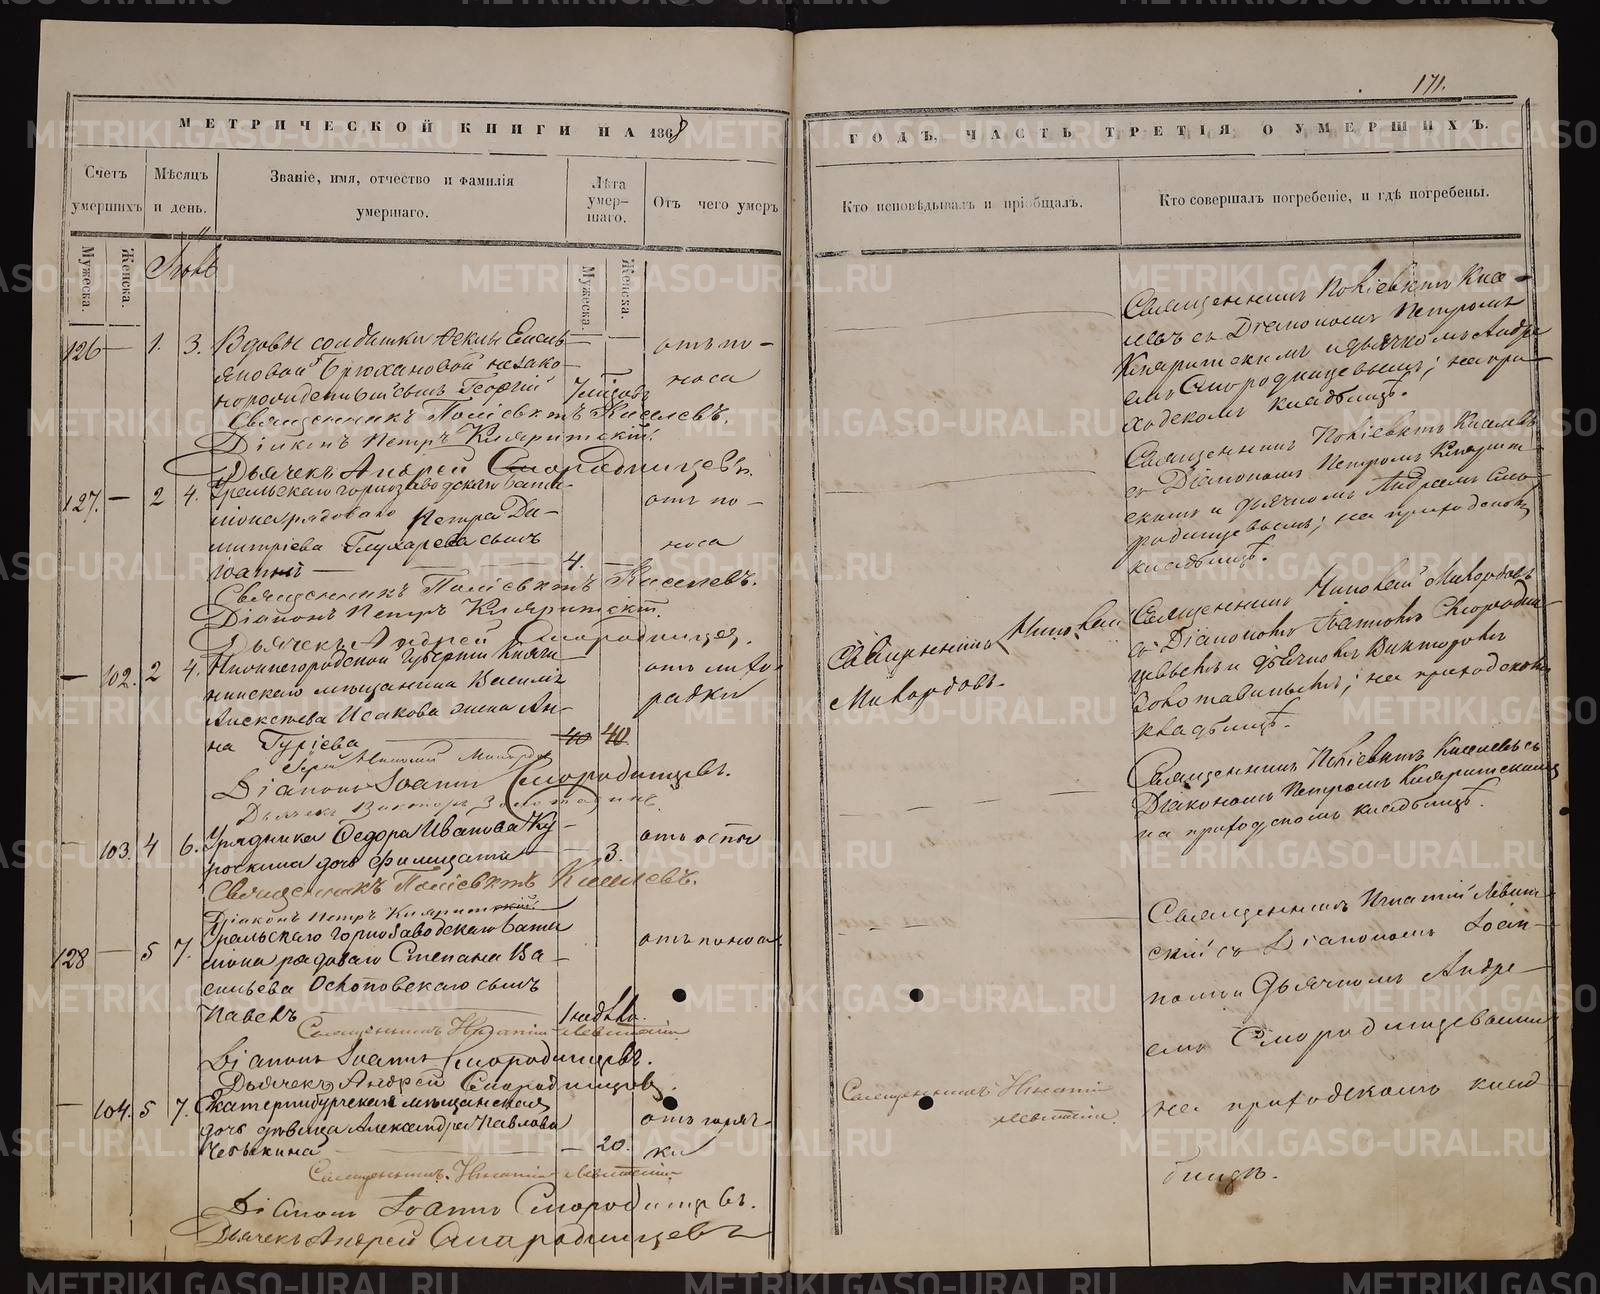 171.
МЕТРИЧЕСКОЙ КНИГИ НА 1868
ГОДЪ, ЧАСТЬ ТРЕТІЯ О УМЕРШИХЪ.
Счетъ умершихъ
Мѣсяцъ и день.
Званіе, имя, отчество и фамилія умершаго.
Лѣта умер-шаго.
Отъ чего умеръ
Кто исповѣдывалъ и пріобщалъ.
Кто совершалъ погребеніе, и гдѣ погребены.
Мужеска.
Женска.
Мужеска.
Женска.
Іюнь
126 — 1. 3. Вдовы солдатки Феклы Емель-
яновой Брюхановой незако-
норожденный сынъ Георгій
7 мѣсяц.
отъ по-
носа
Священникъ Поліевктъ Киселевъ.
Діаконъ Петръ Кипаритскій.
Дьячекъ Андрей Смородинцевъ.
Священникъ Поліевктъ Кисе-
левъ съ Діакономъ Петромъ
Кипаритскимъ и дьячкомъ Андре-
емъ Смородинцевымъ; на при-
ходскомъ кладбищѣ.
127. — 2 4. Уральскаго горнозаводскаго бата-
ліона рядоваго Петра Ди-
митріева Глухарева сынъ
Іоаннъ — 4. —
отъ по-
носа
Священникъ Поліевктъ Киселевъ.
Діаконъ Петръ Кипаритскій.
Дьячекъ Андрей Смородинцев.
Священникъ Поліевктъ Киселевъ
съ Діакономъ Петромъ Кипарит-
скимъ и дьячкомъ Андреемъ Смо-
родинцевымъ; на приходскомъ
кладбищѣ.
— 102. 2 4. Нижегородской губерніи Княги-
нинскаго мѣщанина Василья
Алексѣева Исакова жена Ан-
на Гуріева — 40 40
отъ лихо-
радки
Іерей Николай Милордов
Діаконъ Іоаннъ Смородинцевъ.
Дьячекъ Викторъ Золотавинъ.
Священникъ Николай
Милордовъ.
Священникъ Николай Милордовъ
съ Діакономъ Іоанномъ Смородин-
цевымъ и дьячкомъ Викторомъ
Золотавинымъ; на приходскомъ
кладбищѣ.
— 103. 4 6. Урядника Федора Иванова Ку-
рочкина дочь Филицата — — 3.
отъ оспы
Священникъ Поліевктъ Киселевъ.
Діаконъ Петръ Кипаритскій.
Священникъ Поліевктъ Киселевъ съ
Діакономъ Петромъ Кипаритскимъ
на приходскомъ кладбищѣ.
128 — 5 7. Уральскаго горнозаводскаго бата-
ліона рядоваго Степана Ва-
сильева Осиповскаго сынъ
Павелъ — 1 недѣль.
отъ поноса
Священникъ Игнатій Левитскій.
Діаконъ Іоаннъ Смородинцевъ.
Дьячекъ Андрей Смородинцовъ.
Священникъ Игнатій Левит-
скій съ Діакономъ Іоан-
номъ и Дьячкомъ Андре-
емъ Смородинцевыми
на приходскомъ клад-
бищѣ.
— 104. 5 7. Екатеринбургская мѣщанская
дочь дѣвица Александра Павлова
Чебыкина — — 20.
отъ горяч-
ки
Священникъ Игнатій Левитскій.
Діаконъ Іоаннъ Смородинцевъ.
Дьячекъ Андрей Смородинцевъ
Священникъ Игнатій
Левитскій.
METRIKI.GASO-URAL.RU